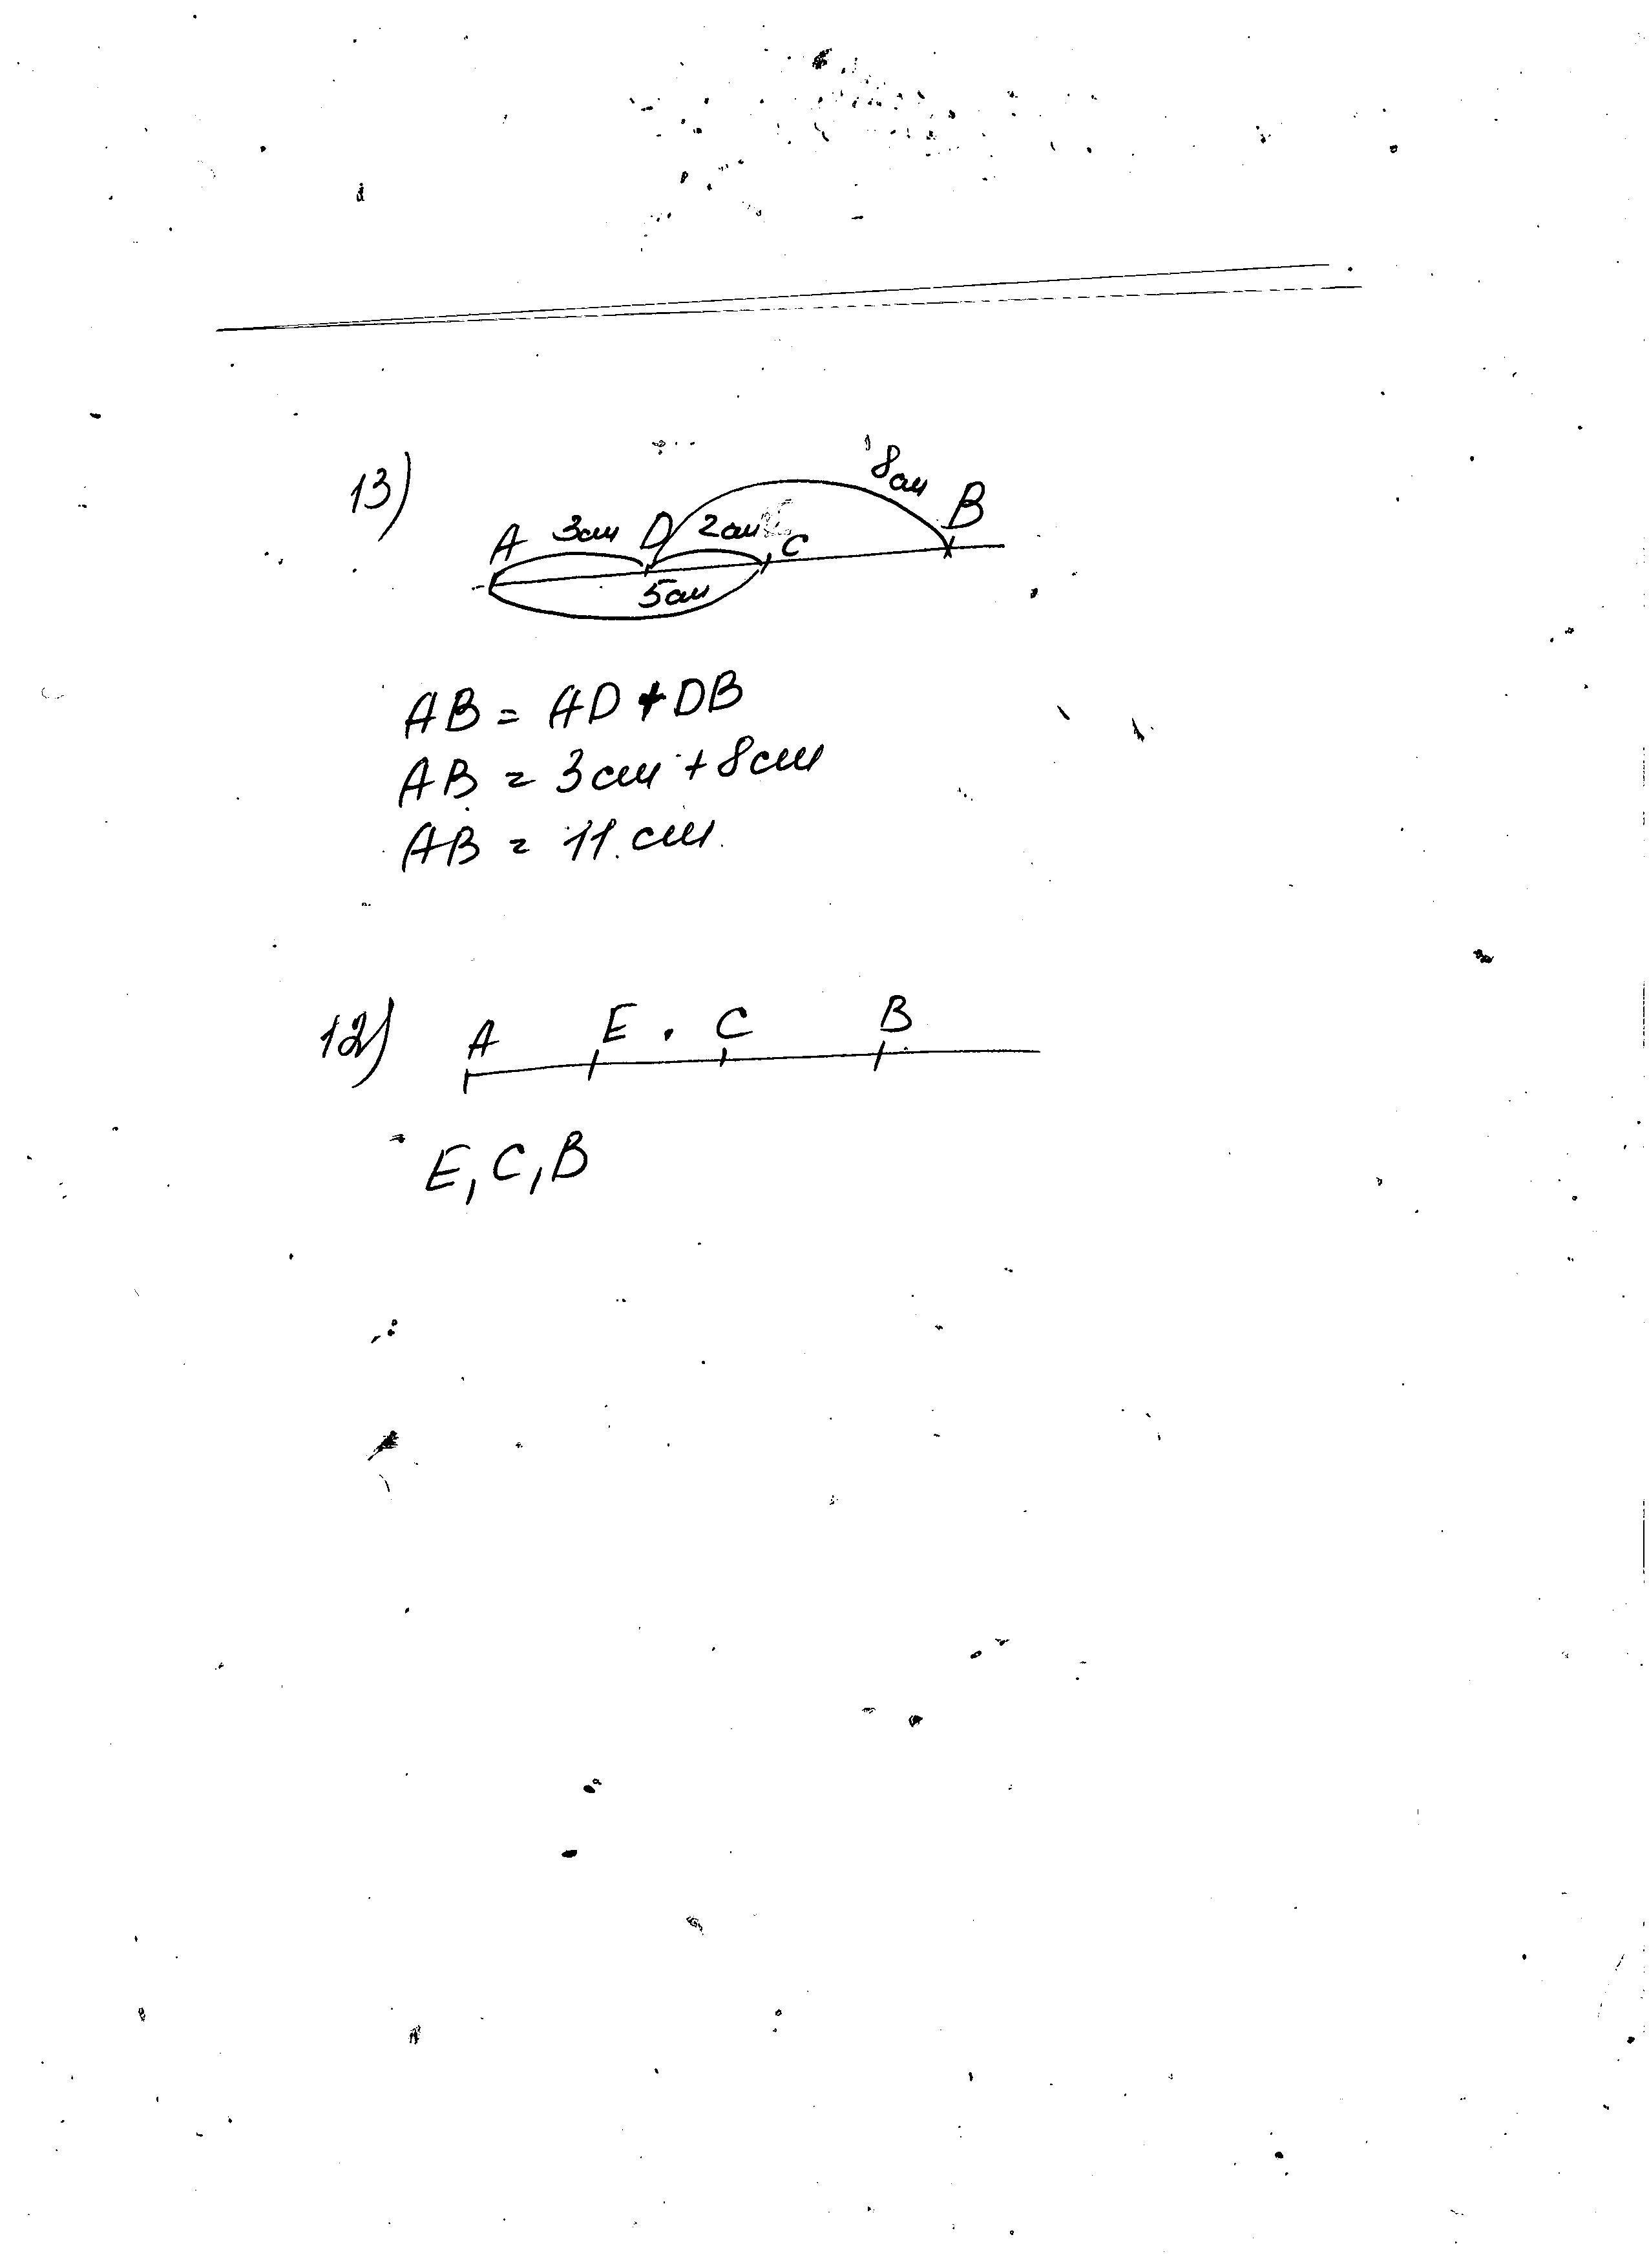 13)
A 3см D 2см C 8см B
5см
AB = AD + DB
AB = 3см + 8см
AB = 11 см.
12) A E C B
E, C, B